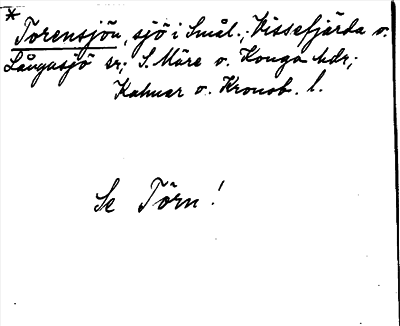 * Torensjön, sjö i Smål.; Vissefjärda o.
Långasjö sr; S. Möre o. Konga hdr;
Kalmar o. Kronob. l.
Se Törn!